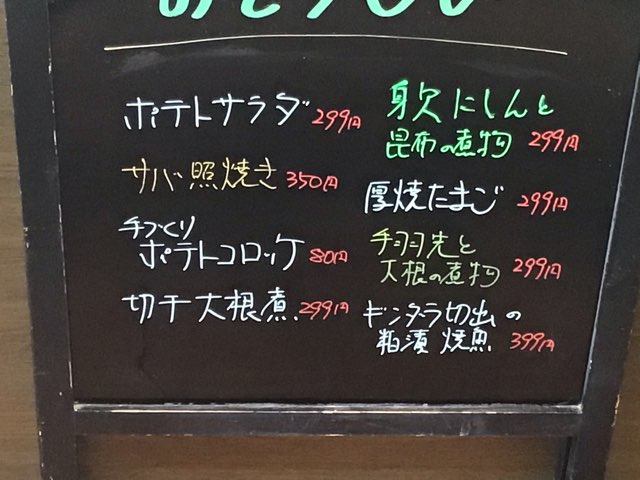 ポテトサラダ 299円
サバ照焼き 350円
手づくり
ポテトコロッケ 80円
切干大根煮 299円
身欠にしんと
昆布の煮物 299円
厚焼たまご 299円
手羽先と
大根の煮物 299円
ギンダラ切出の
粕漬焼魚 399円